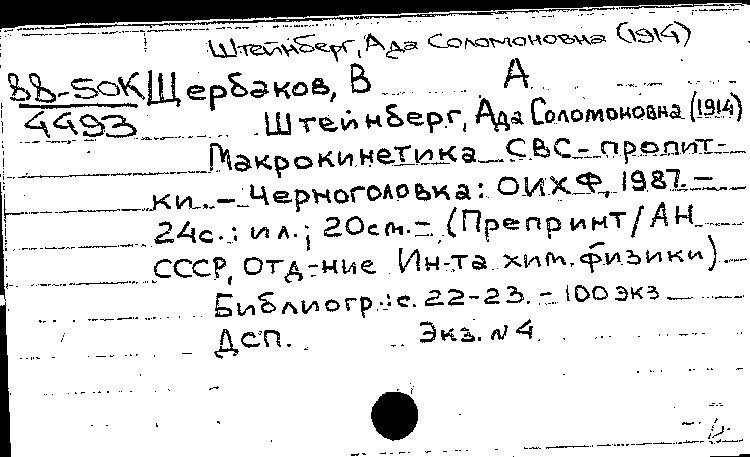 Штейнберг, Ада Соломоновна (1914)
88-50К Щербаков, В А
4493 Штейнберг, Ада Соломоновна (1914)
Макрокинетика СВС-пропит-
ки. – Черноголовка: ОИХФ, 1987. –
24с.: ил.; 20см. – (Препринт/АН
СССР, Отд-ние Ин-та хим. физики)
Библиогр.: с. 22-23. – 100 экз
ДСП. Экз. N 4